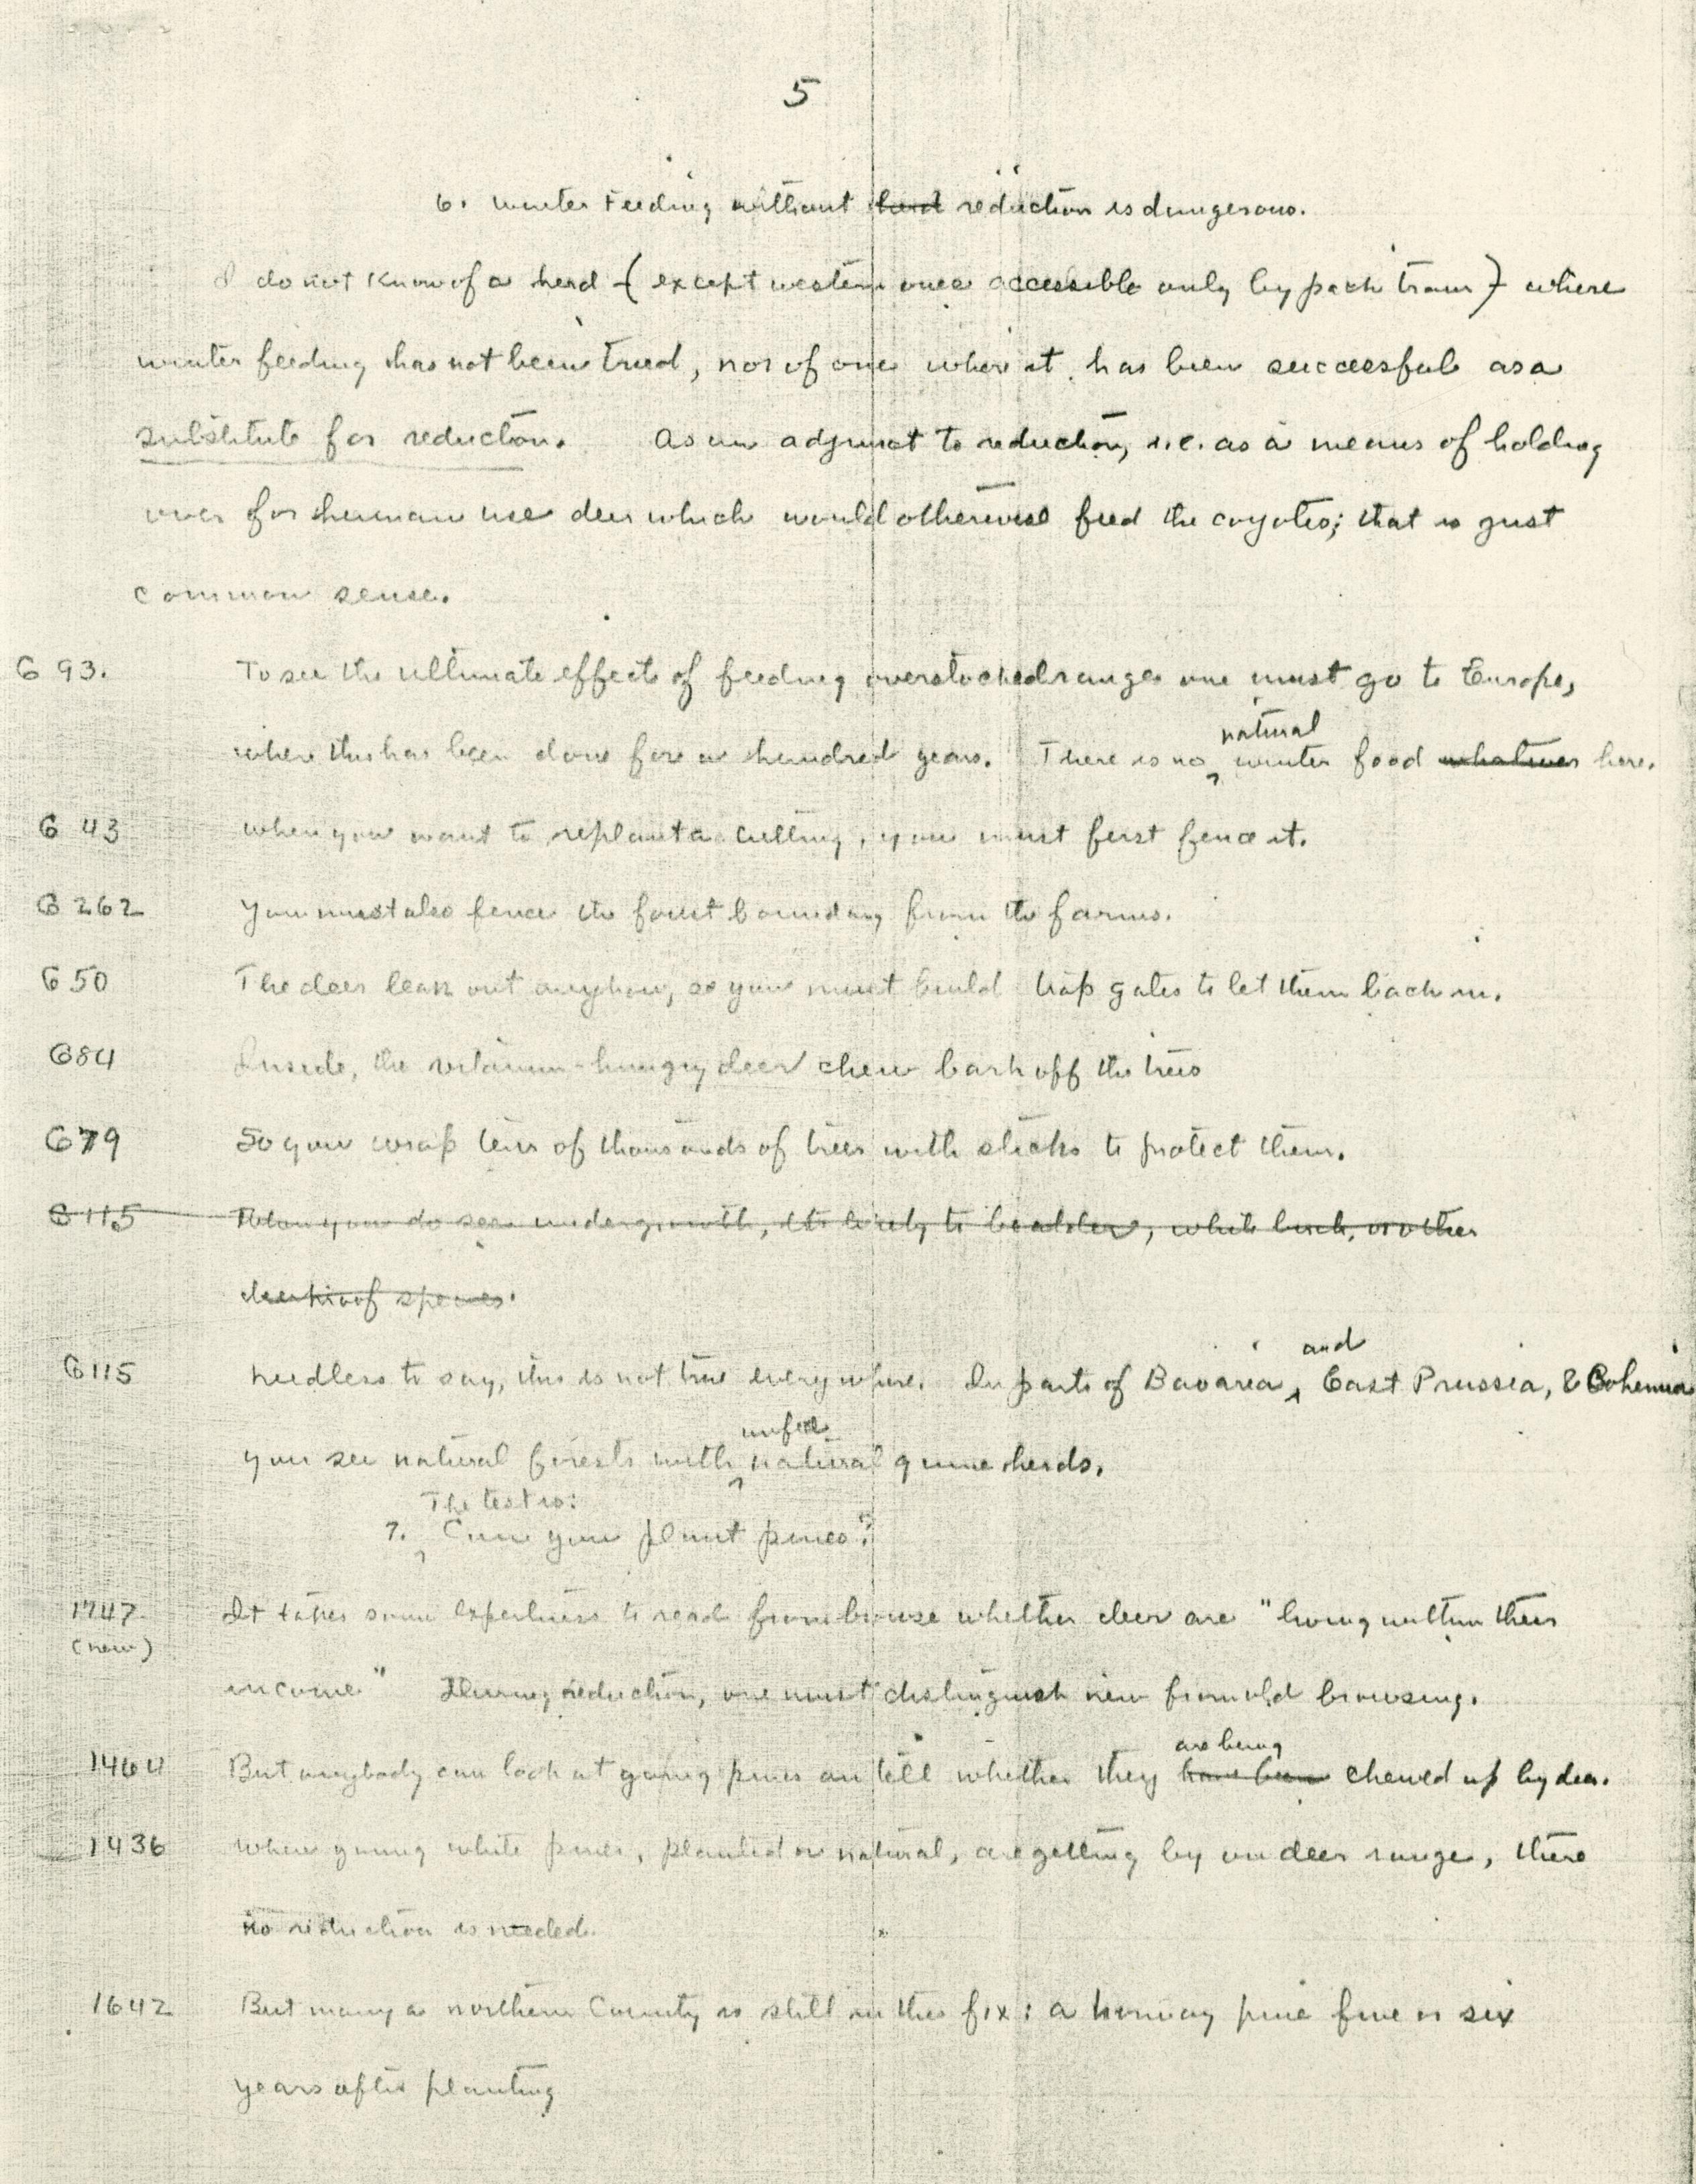 5
6. Winter Feeding without herd reduction is dangerous.
I do not know of a herd (except western ones accessible only by pack train) where
winter feeding has not been tried, nor of one where it has been successful as a
substitute for reduction. As an adjunct to reduction, i.e. as a means of holding
over for human use deer which would otherwise feed the coyotes; that is just
common sense.
G 93. To see the ultimate effects of feeding overstocked ranges one must go to Europe,
natural
where this has been done for a hundred years. There is no winter food whatever here.
G 43 When you want to replant a cutting, you must first fence it.
G 262 You must also fence the forest boundary from the farms.
G 50 The deer leak out anyhow, so you must build trap gates to let them back in.
G84 Inside, the vitamin-hungry deer chew bark off the trees
G79 So you wrap tens of thousands of trees with sticks to protect them.
G 115 When you do see undergrowth, its likely to be alder, white birch, or other
deerproof species.
G115 Needless to say, this is not true everywhere. In parts of Bavaria, and East Prussia, & Bohemia
unfed
you see natural forests with natural game herds.
The test is:
7. Can you plant pines?
1747 It takes some expertness to read from browse whether deer are "living within their
(new)
income" During reduction, one must distinguish new from old browsing.
are being
1464 But anybody can look at young pines an tell whether they have been chewed up by deer.
1436 Where young white pines, planted or natural, are getting by on deer range, there
no reduction is needed.
1642 But many a northern County is still in this fix: a Norway pine five or six
years after planting